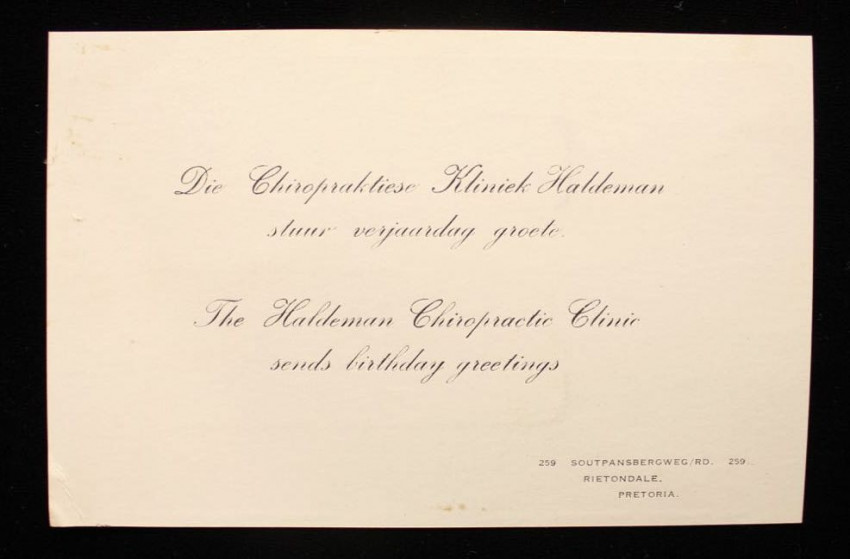 Die Chiropraktiese Kliniek Haldeman
stuur verjaardag groete.
The Haldeman Chiropractic Clinic
sends birthday greetings
259 SOUTPANSBERGWEG/RD. 259
RIETONDALE,
PRETORIA.